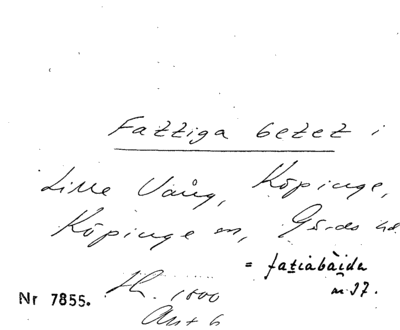 Fattiga betet i
Lille Vång, Köpinge,
Köpinge sn, Gärds hd
= fatiabäida
m. 37.
Nr 7855. Th. 1800